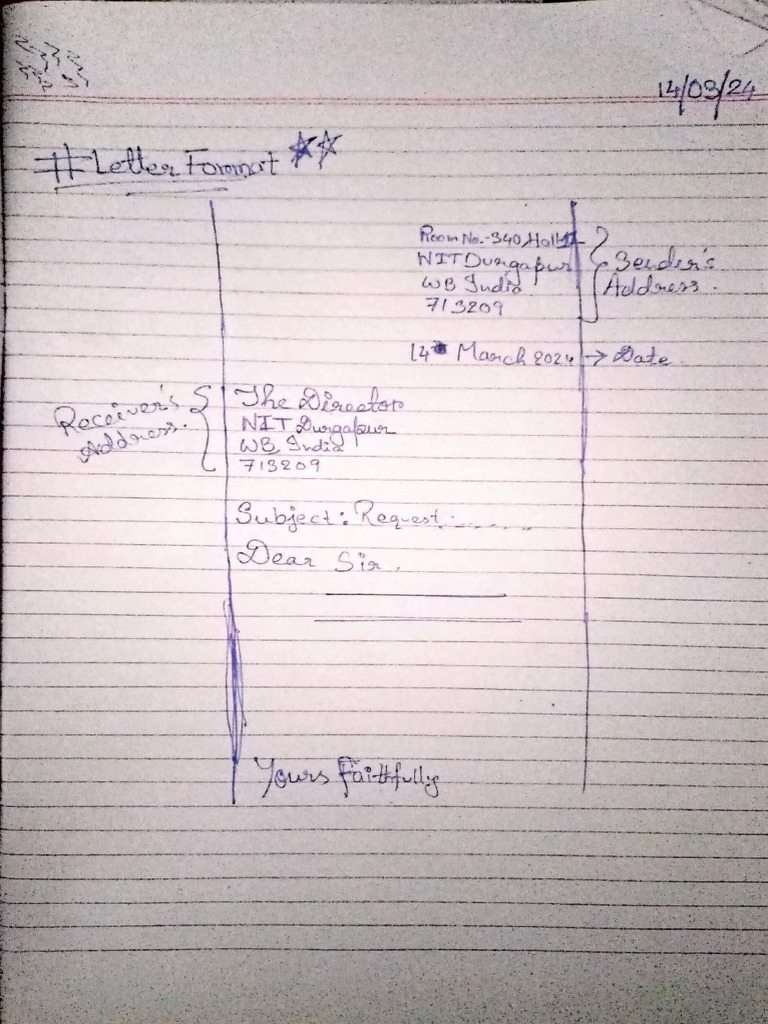 14/03/24
# Letter Format
Room No.-340 Hall
NIT Durgapur
WB India
713209
Sender's
Address.
14 March 2024 → Date
Receiver's
Address.
The Director
NIT Durgapur
WB India
713209
Subject: Request .......
Dear Sir,
Yours Faithfully